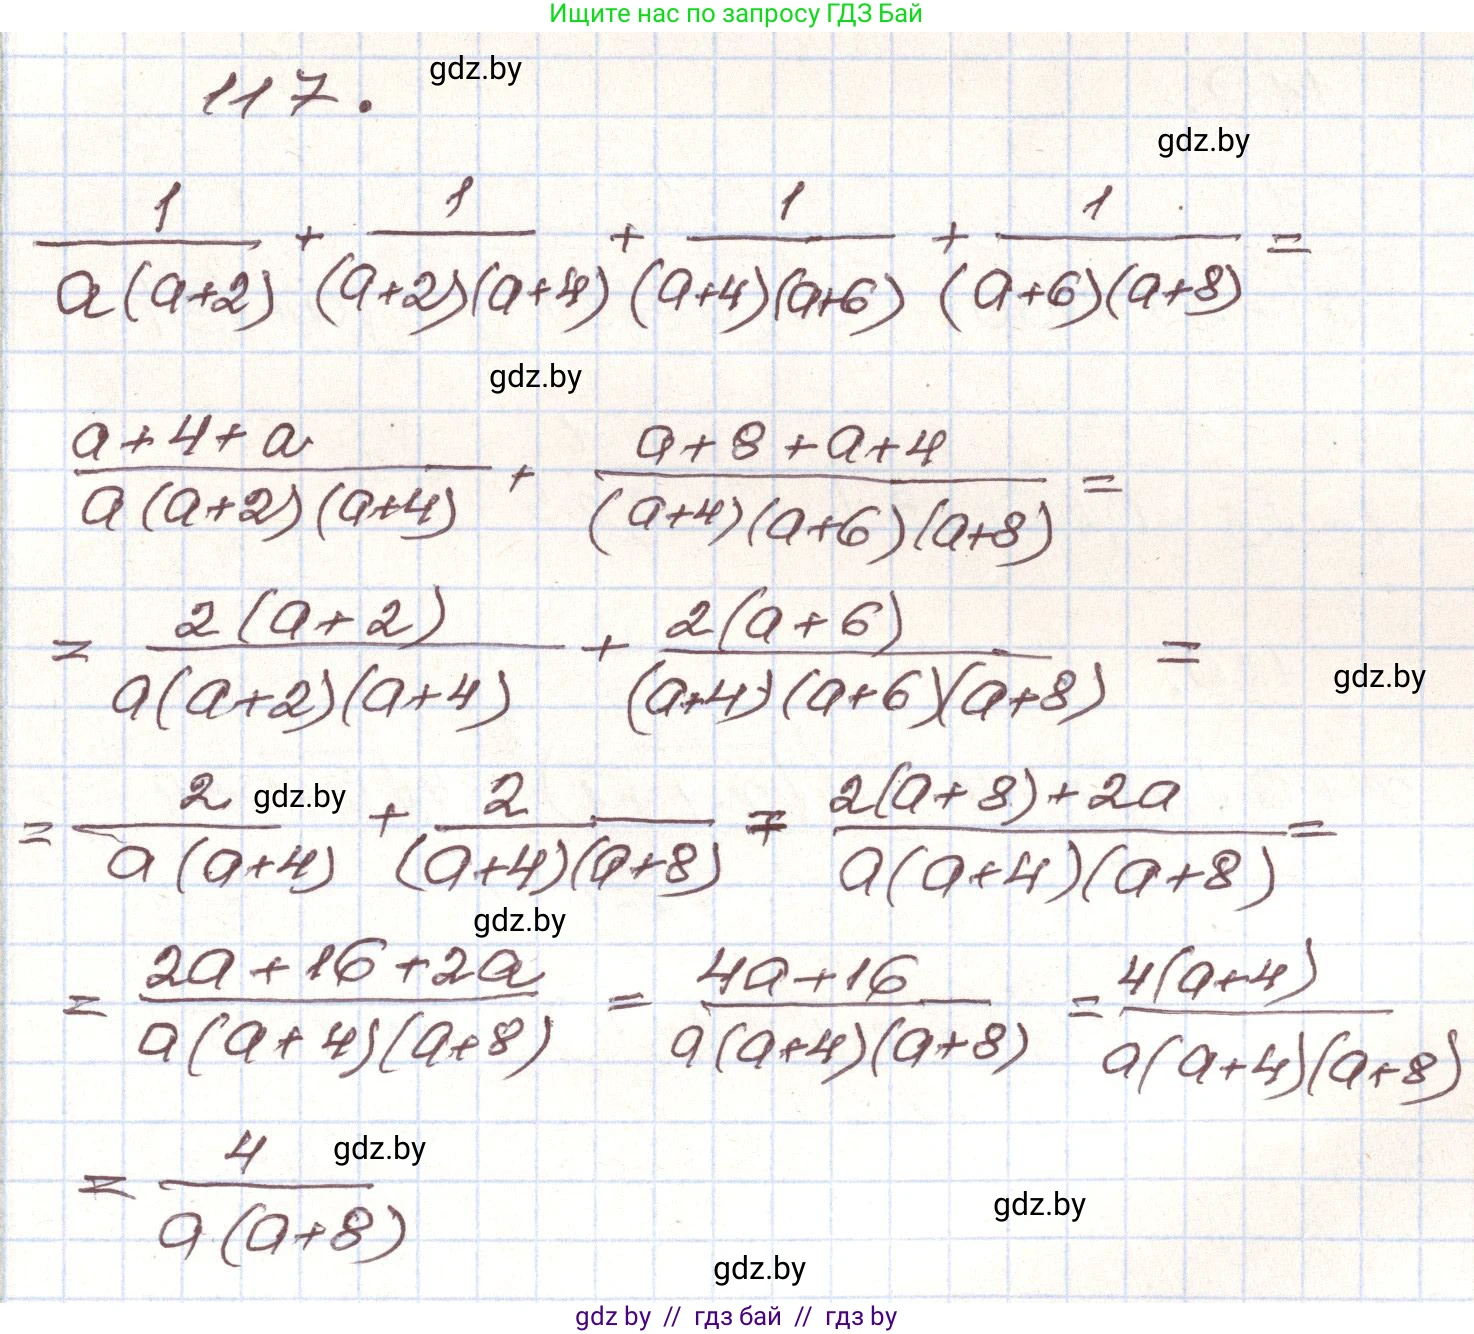 Ищите нас по запросу ГДЗ Бай
117. gdz.by
gdz.by
1/(a(a+2)) + 1/((a+2)(a+4)) + 1/((a+4)(a+6)) + 1/((a+6)(a+8)) =
gdz.by
(a+4+a)/(a(a+2)(a+4)) + (a+8+a+4)/((a+4)(a+6)(a+8)) =
= 2(a+2)/(a(a+2)(a+4)) + 2(a+6)/((a+4)(a+6)(a+8)) =
gdz.by
= 2/(a(a+4)) + 2/((a+4)(a+8)) = (2(a+8)+2a)/(a(a+4)(a+8)) =
gdz.by
gdz.by
= (2a+16+2a)/(a(a+4)(a+8)) = (4a+16)/(a(a+4)(a+8)) = 4(a+4)/(a(a+4)(a+8))
= 4/(a(a+8))
gdz.by
gdz.by
gdz.by
gdz by // гдз бай // гдз by